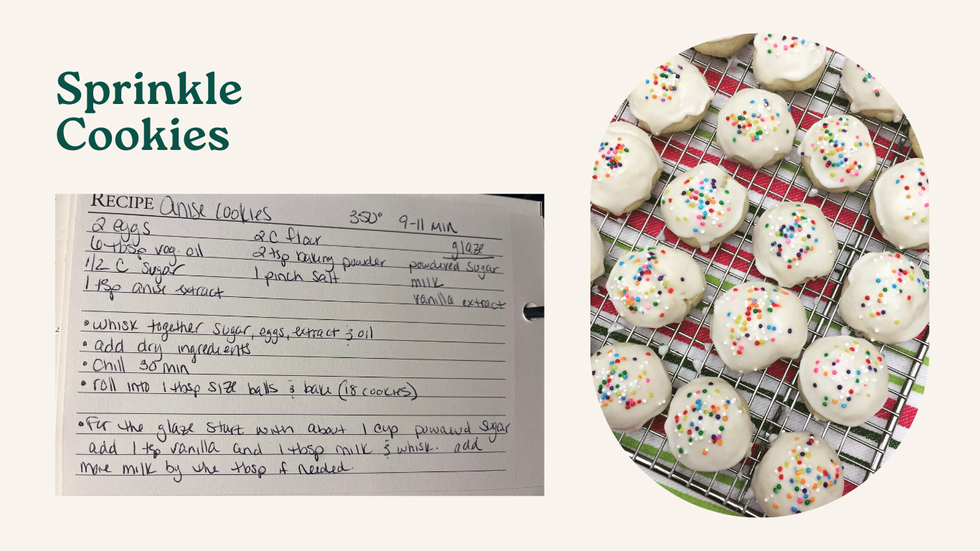 Sprinkle
Cookies
RECIPE anise cookies 350° 9-11 min
2 eggs
6 tbsp veg. oil
1/2 C sugar
1 tsp anise extract
2 C flour
2 tsp baking powder
1 pinch salt
glaze
powdered sugar
milk
vanilla extract
• whisk together sugar, eggs, extract & oil
• add dry ingredients
• Chill 30 min
• roll into 1 tbsp size balls & bake (18 cookies)
• For the glaze start with about 1 cup powdered sugar
add 1 tsp vanilla and 1 tbsp milk & whisk. add
more milk by the tbsp if needed.